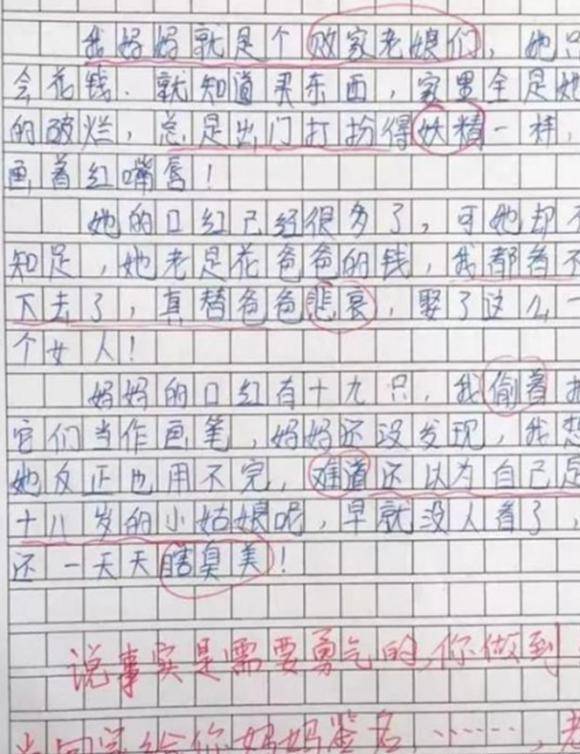 我妈妈就是个败家老娘们，她只
会花钱．就知道买东西，家里全是她
的破烂，总是出门打扮得妖精一样，
画着红嘴唇！
她的口红已经很多了，可她却不
知足，她老是花爸爸的钱，我都看不
下去了，真替爸爸悲哀，娶了这么一
个女人！
妈妈的口红有十九只，我偷着把
它们当作画笔，妈妈还没发现，我想
她反正也用不完，难道还以为自己是
十八岁的小姑娘呢，早就没人看了，
还一天天瞎臭美！
说事实是需要勇气的，你做到
给你妈妈签名，……